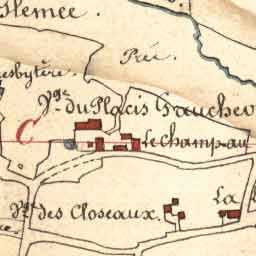 Plemee
Prée
esbytère.
Vge du Placis Gauche
C
Le Champ au
Vge des Closeaux.
La